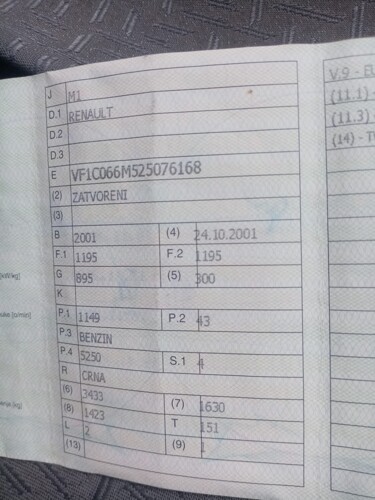 J M1
D.1 RENAULT
D.2
D.3
E VF1C066M525076168
(2) ZATVORENI
(3)
B 2001 (4) 24.10.2001
F.1 1195 F.2 1195
G 895 (5) 300
K
P.1 1149 P.2 43
P.3 BENZIN
P.4 5250 S.1 4
R CRNA
(6) 3433 (7) 1630
(8) 1423 T 151
L 2 (9) 1
(13)
V.9 - EU
(11.1)
(11.3)
(14) - T